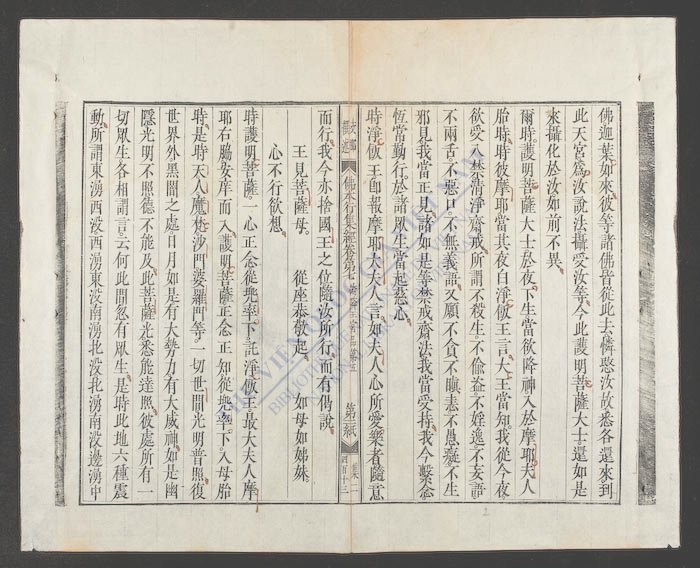 佛迦葉如來彼等諸佛皆從此去憐愍汝故悉各還來到
此天宮爲汝說法攝受汝等今此護明菩薩大士還如是
來攝化於汝如前不異
爾時護明菩薩大士於夜下生當欲降神入於摩耶夫人
胎時時彼摩耶當其夜白淨飯王言大王當知我從今夜
欲受八禁清淨齋戒所謂不殺生不偷盜不婬逸不妄語
不兩舌不惡口不無義語又願不貪不瞋恚不愚癡不生
邪見我當正見諸如是等禁戒齋法我當受持我今繫念
恆當勤行於諸眾生當起慈心
時淨飯王卽報摩耶大夫人言如夫人心所愛樂者隨意
佛本行集經卷第七 第三紙
而行我今亦捨國王之位隨汝所行而有偈說
王見菩薩母 從座恭敬起 如母如姊妹
心不行欲想
時護明菩薩一心正念從兜率下託淨飯王最大夫人摩
耶右脇安庠而入護明菩薩正念正知從兜率下入母胎
時是時天人魔梵沙門婆羅門等一切世間光明普照復
世界外黑闇之處日月如是有大勢力有大威神如是幽
隱光明不照德不能及此菩薩光悉能達照彼處所有一
切眾生各相謂言云何此間忽有眾生是時此地六種震
動所謂東湧西沒西湧東沒南湧北沒北湧南沒邊湧中